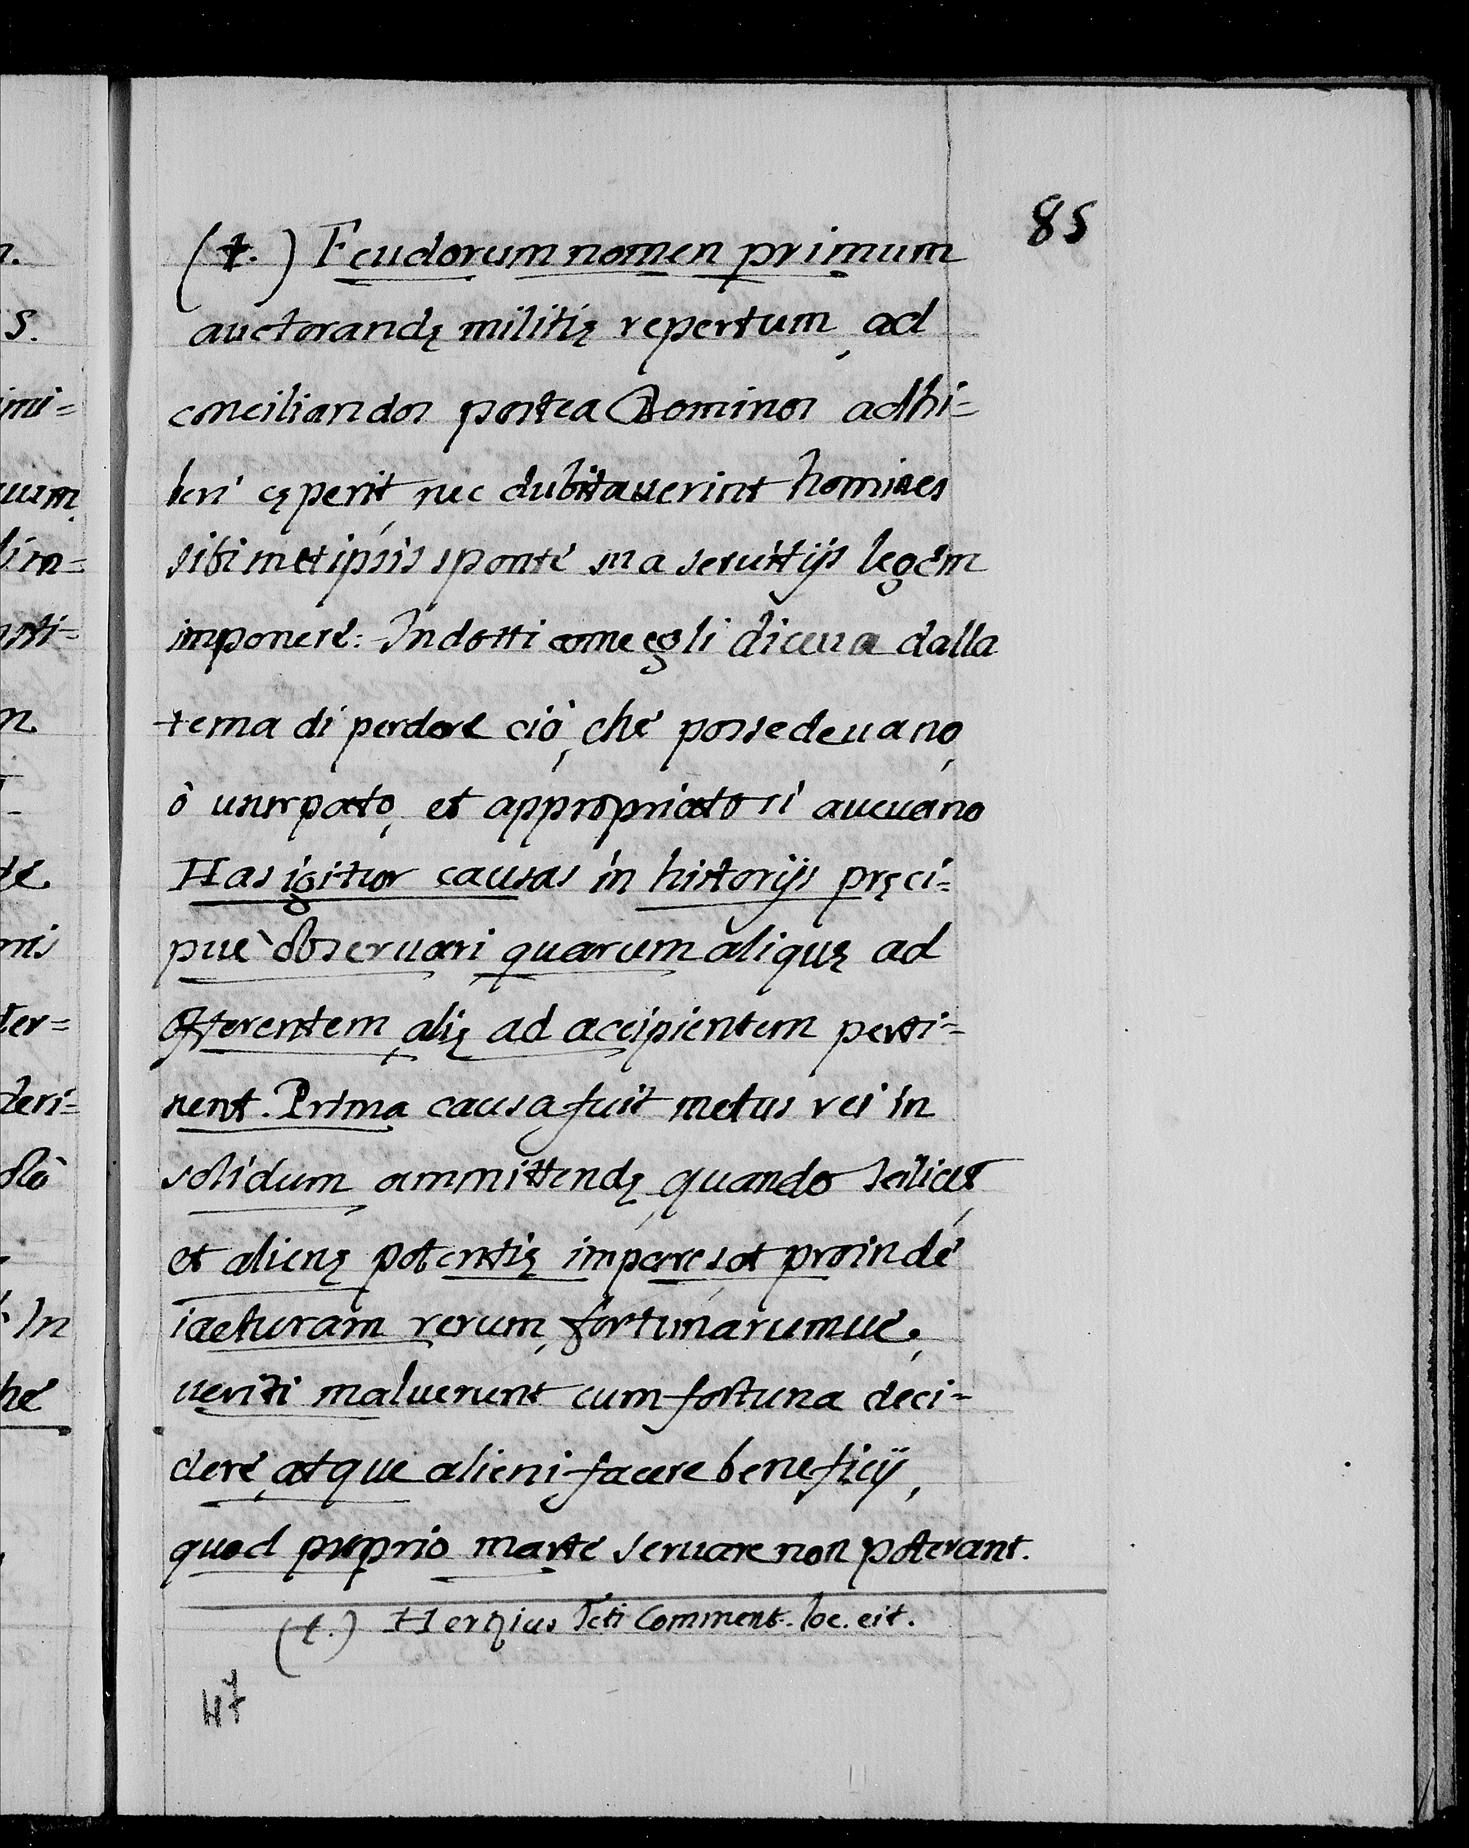 85
(t.) Feudorum nomen primum
auctorandę militię repertum, ad
conciliandos postea Dominos adhi=
beri cęperit, nec dubitauerint homines
sibi metipsis sponte sua seruitijs legem
imponere: Indotti come egli diceua dalla
tema di perdere ciò, che possedeuano,
ò usurpato, et appropriato si aueuano
Has igitur causas in historijs pręci=
puè obseruari quarum aliquę ad
offerentem, alię ad accipientem perti=
nent. Prima causa fuit metus rei in
solidum ammittendę, quando scilicet,
et alienę potentię impares, et proinde
iacturam rerum, fortunarumue,
ueriti maluerunt cum fortuna deci=
dere, atque alieni facere beneficij,
quod proprio marte seruare non poterant.
(t.) Herzius Icti Comment. loc. cit.